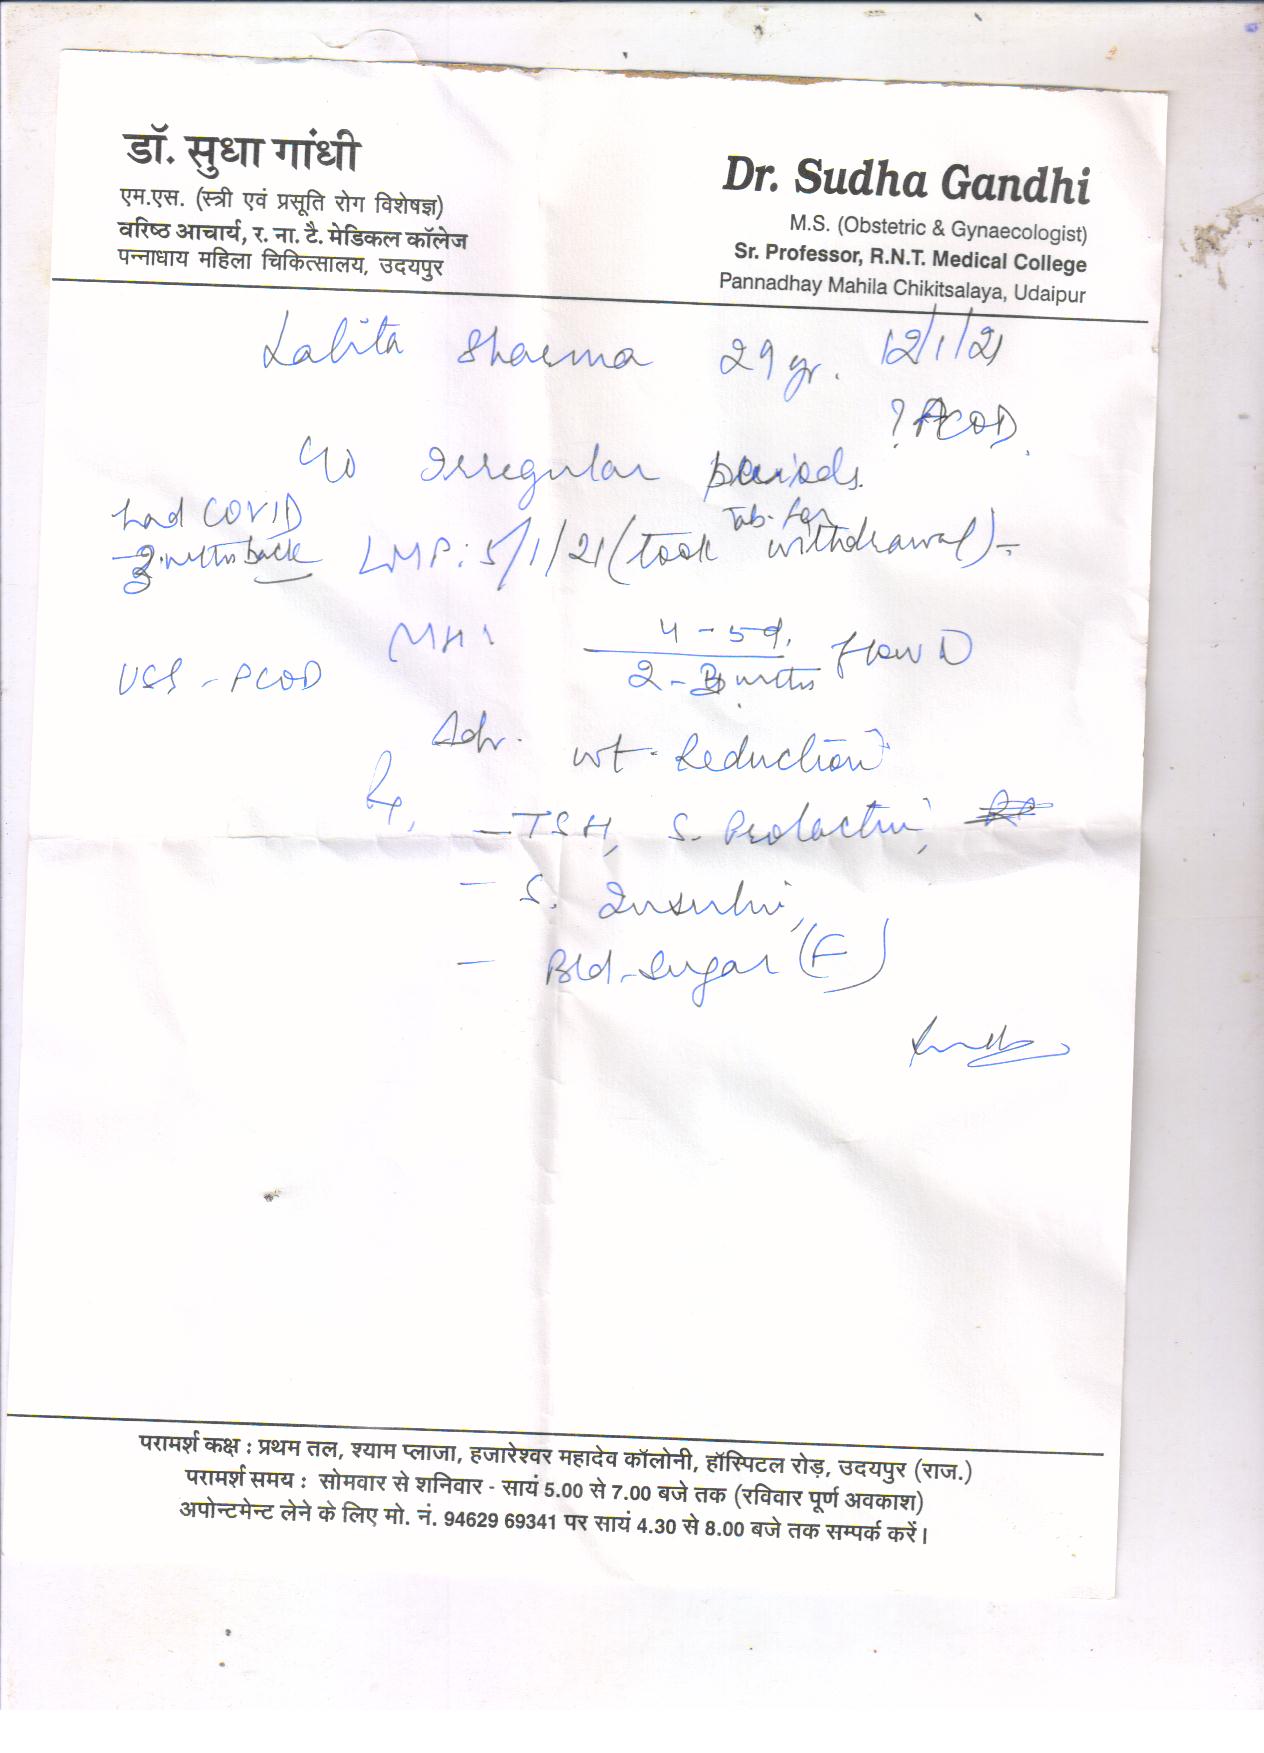 डॉ. सुधा गांधी
एम.एस. (स्त्री एवं प्रसूति रोग विशेषज्ञ)
वरिष्ठ आचार्य, र. ना. टै. मेडिकल कॉलेज
पन्नाधाय महिला चिकित्सालय, उदयपुर
Dr. Sudha Gandhi
M.S. (Obstetric & Gynaecologist)
Sr. Professor, R.N.T. Medical College
Pannadhay Mahila Chikitsalaya, Udaipur
Lalita Sharma 29 yr. 12/1/21
? PCOD
c/o Irregular periods.
had COVID
mths back
LMP: 5/1/21 (took Tab. for withdrawal)
MH: 4-5 d.
2-3 mths flow N
USG - PCOD
Adv. wt. Reduction
Rx, - TSH, S. Prolactin,
- S. Insulin,
- Bld. Sugar (F)
परामर्श कक्ष : प्रथम तल, श्याम प्लाजा, हजारेश्वर महादेव कॉलोनी, हॉस्पिटल रोड़, उदयपुर (राज.)
परामर्श समय : सोमवार से शनिवार - सायं 5.00 से 7.00 बजे तक (रविवार पूर्ण अवकाश)
अपोन्टमेन्ट लेने के लिए मो. नं. 94629 69341 पर सायं 4.30 से 8.00 बजे तक सम्पर्क करें।